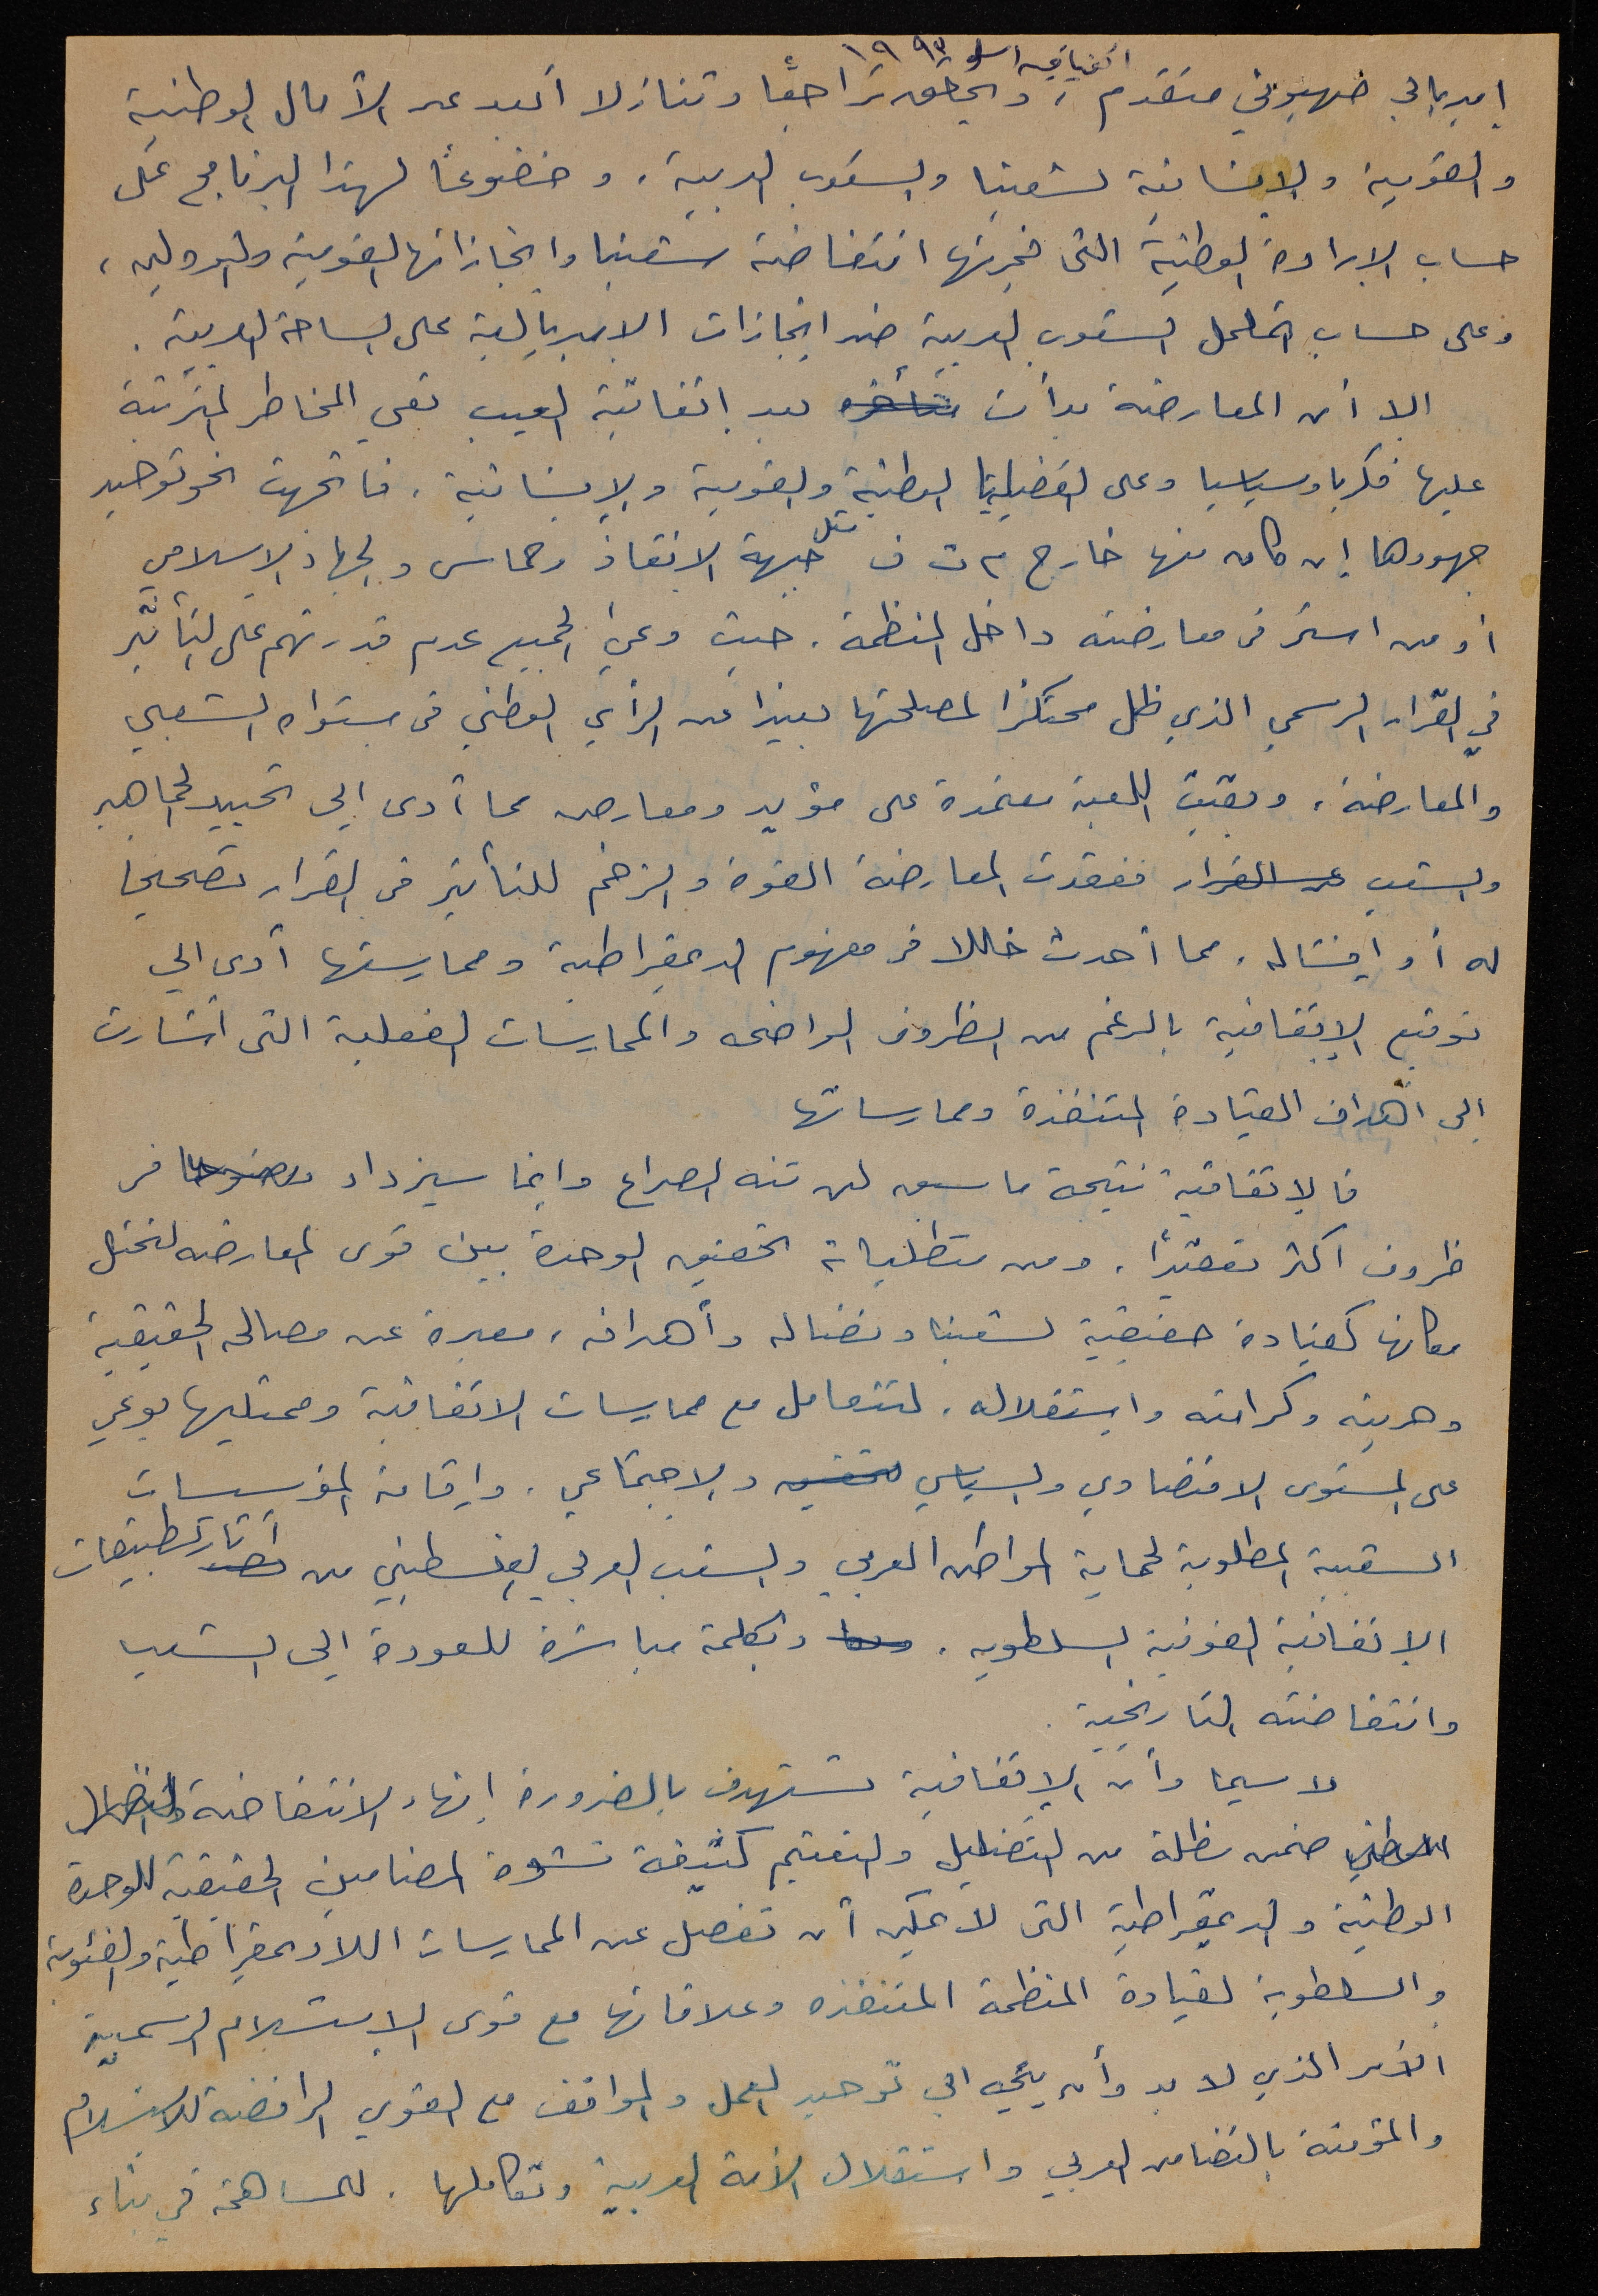 اتفاقية اسلو ١٩٩٣
إمبريالي صهيوني متقدم، ويحقق تراجعًا وتنازلا أكيد عن الآمال الوطنية
والقومية والإنسانية لشعبنا والشعوب العربية. وخضوعًا لهذا البرنامج على
حساب الإرادة الوطنية التي فجرتها انتفاضة شعبنا وانجازاتها القومية والدولية،
وعلى حساب تململ الشعوب العربية ضد انجازات الامبريالية على الساحة العربية.
الا أن المعارضة بدأت بعد اتفاقية العيب تعي المخاطر المترتبة
عليها فكريا وسياسيا وعلى القضايا الوطنية والقومية والإنسانية. فاتجهت نحو توحيد
جهودها إن كان منها خارج م ت ف مثل جبهة الانقاذ وحماس والجهاد الإسلامي
أو من استمر في معارضته داخل المنظمة. حيث وعي الجميع عدم قدرتهم على التأثير
في القرار الرسمي الذي ظل محتكرًا لمصلحتها بعيدا عن الرأي الوطني في مستواه الشعبي
والمعارضة، وبقيت اللعبة معتمدة على مؤيد ومعارض مما أدى إلى تحييد الجماهير
والشعب عن القرار ففقدت المعارضة القوة والزخم للتأثير في القرار تصحيحا
له أو إفشاله. مما أحدث خللا في مفهوم الديمقراطية وممارستها أدى الى
توقيع الإتفاقية بالرغم من الظروف الواضحه والممارسات الفعلية التي أشارت
إلى اهداف القيادة المتنفذة وممارساتها
فالإتفاقية نتيجة ما سبق لن تنه الصراع وانما سيزداد وضوحا في
ظروف اكثر تعقيدًا. ومن متطلباته تحقيق الوحدة بين قوى المعارضه لتحتل
مكانها كقيادة حقيقية لشعبنا ونضاله وأهدافه، معبرة عن مصالحه الحقيقية
وحريته وكرامته واستقلاله. لتتعامل مع ممارسات الاتفاقية وممثليها بوعي
على المستوى الاقتصادي والسياسي والاجتماعي. وإقامة المؤسسات
الشعبية المطلوبة لحماية المواطن العربي والشعب العربي الفلسطيني من آثار تطبيقات
الإتفاقية الفوقية السلطويه. وبكلمة مباشرة للعودة إلى الشعب
وانتفاضته التاريخية.
لا سيما وأن الإتفاقية تستهدف بالضرورة إنهاء الانتفاضة والنضال
الوطني ضمن مظلة من التضليل والتعتيم كثيفة تشوه المضامين الحقيقية للوحدة
الوطنية والديمقراطية التي لا يمكن أن تفصل عن الممارسات اللاديمقراطية والفئوية
والسلطوية لقيادة المنظمة المتنفذه وعلاقاتها مع قوى الإستسلام الرسمية
الأمر الذي لا بد وأن يتجه الى توحيد العمل والمواقف مع القوى الرافضة للاستسلام
والمؤمنة بالتضامن العربي واستقلال الأمة العربية وتكاملها. للمساهمة في بناء